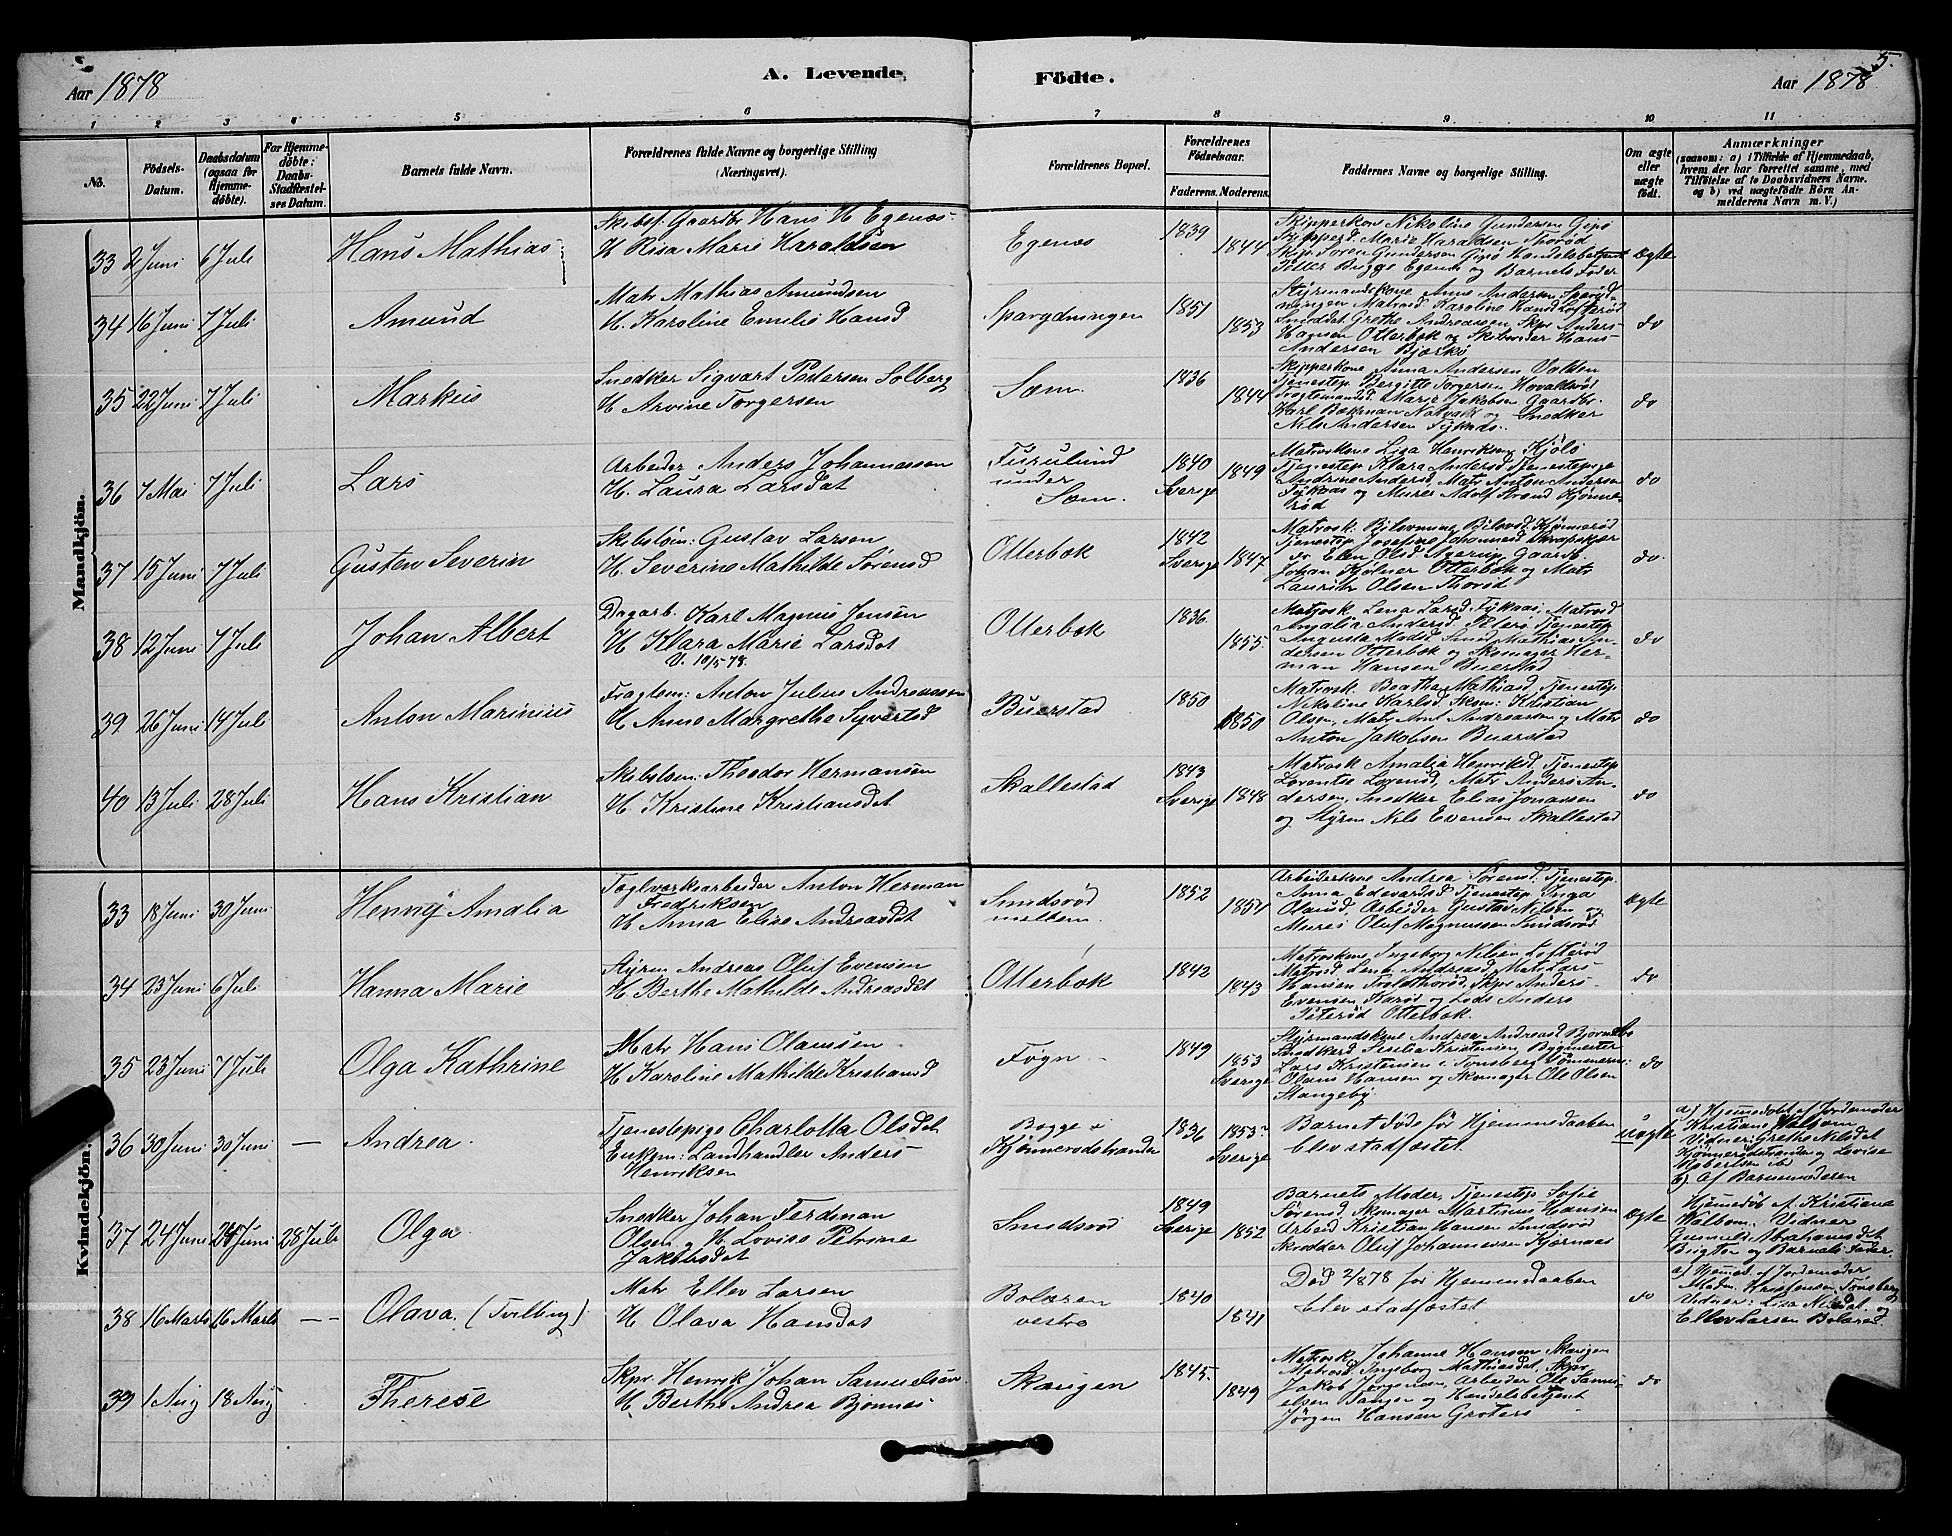 Aar 1878
A. Levende
Födte.
Aar 1878
5.
1 2 3 4 5 6 7 8 9 10 11
No.
Födsels-
Datum.
Daabsdatum
(ogsaa for
Hjemme-
döbte).
For Hjemme-
döbte:
Daabs-
Stadfæstel-
ses Datum.
Barnets fulde Navn.
Forældrenes fulde Navne og borgerlige Stilling
(Næringsvei).
Forældrenes Bopæl.
Forældrenes
Födselsaar.
Faderens. Moderens.
Faddernes Navne og borgerlige Stilling.
Om ægte
eller
uægte
födt.
Anmærkninger
(saasom: a) i Tilfælde af Hjemmedaab,
hvem der har forrettet samme, med
Tilföielse af to Daabsvidners Navne.
og b) ved uægtefödte Börn An-
melderens Navn m. V.)
Mandkjön.
33 2 Juni 6 Juli
Hans Mathias
Gaardbr Hans H Egenæs
H Risa Marie Haraldsen
Egenæs
1839
1844
Skipperkone Nikoline Gundersen Gipö
Marie Haraldsen Thorød
Sören Gundersen Gipö Handelsbetjent
Bugge Egenæs og Barnets Fader
Ægte
34 16 Juni 7 Juli
Amund
Matr Mathias Amundsen
H. Karoline Emilie Hansd
1851
1853
Styrmandskone Anne Andersen
Matrosd. Karoline Hansd Lofterød
Smeddtr Grethe Andreassen Skpr Anders
Hansen Otterbæk og Skibsreder Hans
Andersen Bjærkø
do
35 22 Juni 7 Juli
Markus
Snedker Sigvart Pedersen Solberg
H Arvine Torgersen
Sæm.
1836
1844
Skipperkone Anna Andersen Valden
Tjenestep Bergitte Torgersen
Marie Jakobsen Gaardbr.
Karl Bækman og Snedker
Nils Andersen
do
36 7 Mai 7 Juli
Lars
Arbeider Anders Johannessen
H. Laura Larsdat
Furulund
under
Sæm.
1840
Sverige
1849
Matrskone Lisa Henriksen Kjölö
Tjenestep Klara Andersd Tjenestepige
Andrine Andersd, Matr Anton Andersen
og Murer Adolf Strand Kjønne-
rød
do
37 15 Juni 7 Juli
Gusten Severin
Skibstøm: Gustav Larsen
H. Severine Mathilde Sørensd
Otterbæk
1842
Sverige
1847
Tjenestep Josefine Johannesd
do Elen Olsd Gaardb.
Johan Kjölner Otterbæk og Matr
Lauritz Olsen Thorød
do.
38 12 Juni 7 Juli
Johan Albert
Dagarb. Karl Magnus Jensen
H Klara Marie Larsdat
V. 10/5 78.
Otterbæk
1836
1855.
Matrosk. Lena Larsd
Amalia Andersd. Tjenestep
Augusta Madsd Smed Mathias An-
dersen Otterbæk og Skomager Her-
man Hansen Buerstad
do
39 26 Juni 14 Juli
Anton Marinius
Fragtem: Anton Julius Andreassen
H Anne Margrethe Syvertsd
Buerstad
1850
1850
Matrosk. Beathe Mathiasd, Tjenestep
Nikoline Karlsd. Skom: Kristian
Olsen, Matr Arnt Andreassen og Matr
Anton Jakobsen Buerstad
do
40 13 Juli 28 Juli
Hans Kristian
Skibstøm: Theodor Hermansen
H. Kristine Kristiansdat
Skallestad
1843
Sverige
1848
Matrosk Amalia Henriksd. Tjenestep
Lorentse Lorensd, Matr Anders An-
dersen, Snedker Elias Jonassen
og Styrm Nils Evensen Skallestad
do
Kvindekjön.
33 18 Juni 30 Juni
Henny Amalia
Teglverksarbeider Anton Herman
Fredriksen
H Anna Elise Andreasdat
Smidsrød
mellem.
1852
1854
Arbeiderkone Andrea Sørensd. Tjenestep.
Anna Edevardsd. Tjenestep. Inga
Olausd, Arbeider Gustav Nilsen og
Murer Oluf Magnussen Smidsrød
Ægte
34 23 Juni 6 Juli
Hanna Marie
Styrm Andreas Oluf Evensen
H Berthe Mathilde Andreasdat
Otterbæk
1842
1843
Matrskone Ingeborg Nilsen Lofterød
Matrosd Lena Andreasd Matr Lars
Hansen Skpr Anders
Evensen og Lods Anders
Peterød Otterbæk.
do
35 23 Juni 7 Juli
Olga Kathrine
Matr Hans Olaussen
H Karoline Mathilde Kristiansd
Föyn
1849
1853
Sverige
Styrmandskone Andrea Andreasd
Kristensen, Bygmester
Lars Kristensen i Tønsberg Tømmerm:
Olaus Hansen og Skomager Ole Olsen
Stangeby
do
36 30 Juni 30 Juni —
Andrea.
Tjenestepige Charlotta Olsdat
Enkem: Landhandler Anders
Henriksen
Bogge i
Kjønnerødstrander
1836
1853
Sverige
Barnet døde før Hjemmedaaben
blev stadfæstet.
uægte
a) Hjemedöbt af Jordemoder
Kristiane Walbom
Vidner: Grethe Nilsdat
Kjönnerödstrander og Lovise
Robertsen ibd
b) Af Barnemoderen
37 24 Juni 24 Juni 28 Juli
Olga.
Snedker Johan Ferdinan
Olsen og H. Lovise Petrine
Jakobsdat
Smidsrød
1849
Sverige
1852
Barnets Moder, Tjenestep Sofie
Sørensd Skomager Martinus Hansen
Arbeid Kristian Hansen Smidsrød
Skrædder Oluf Johannessen Kjærnaas
Ægte
Hjemedøb. af Kristiana
Walbom. Vidner
Gunnild Abrahamsdat
og Barnets Fader.
38 16 Marts 16 Marts —
Olava. (Tvilling)
Matr Ellev Larsen
H. Olava Hansdat
Bolæren
vestre
1840
1841
Død 2/878 før Hjemmedaaben
blev stadfæstet
do
a) Hjemed. af Jordemoder
Kristensen Tønsberg
Vidner: Lisa Nilsdat. og
Ellev Larsen Bolæren.
39 1 Aug 18 Aug
Therese
Skpr. Henrik Johan Samuelsen
H. Berthe Andrea Bjønnes
Skaugen
1845.
1849
Matrosk, Johanne Hansen Skaugen
Matrosd, Ingeborg Mathiasdat, Skpr
Jakob Jørgensen, Arbeider Ole Samu-
elsen og Handelsbetjent
Jørgen Hansen Grotens
do